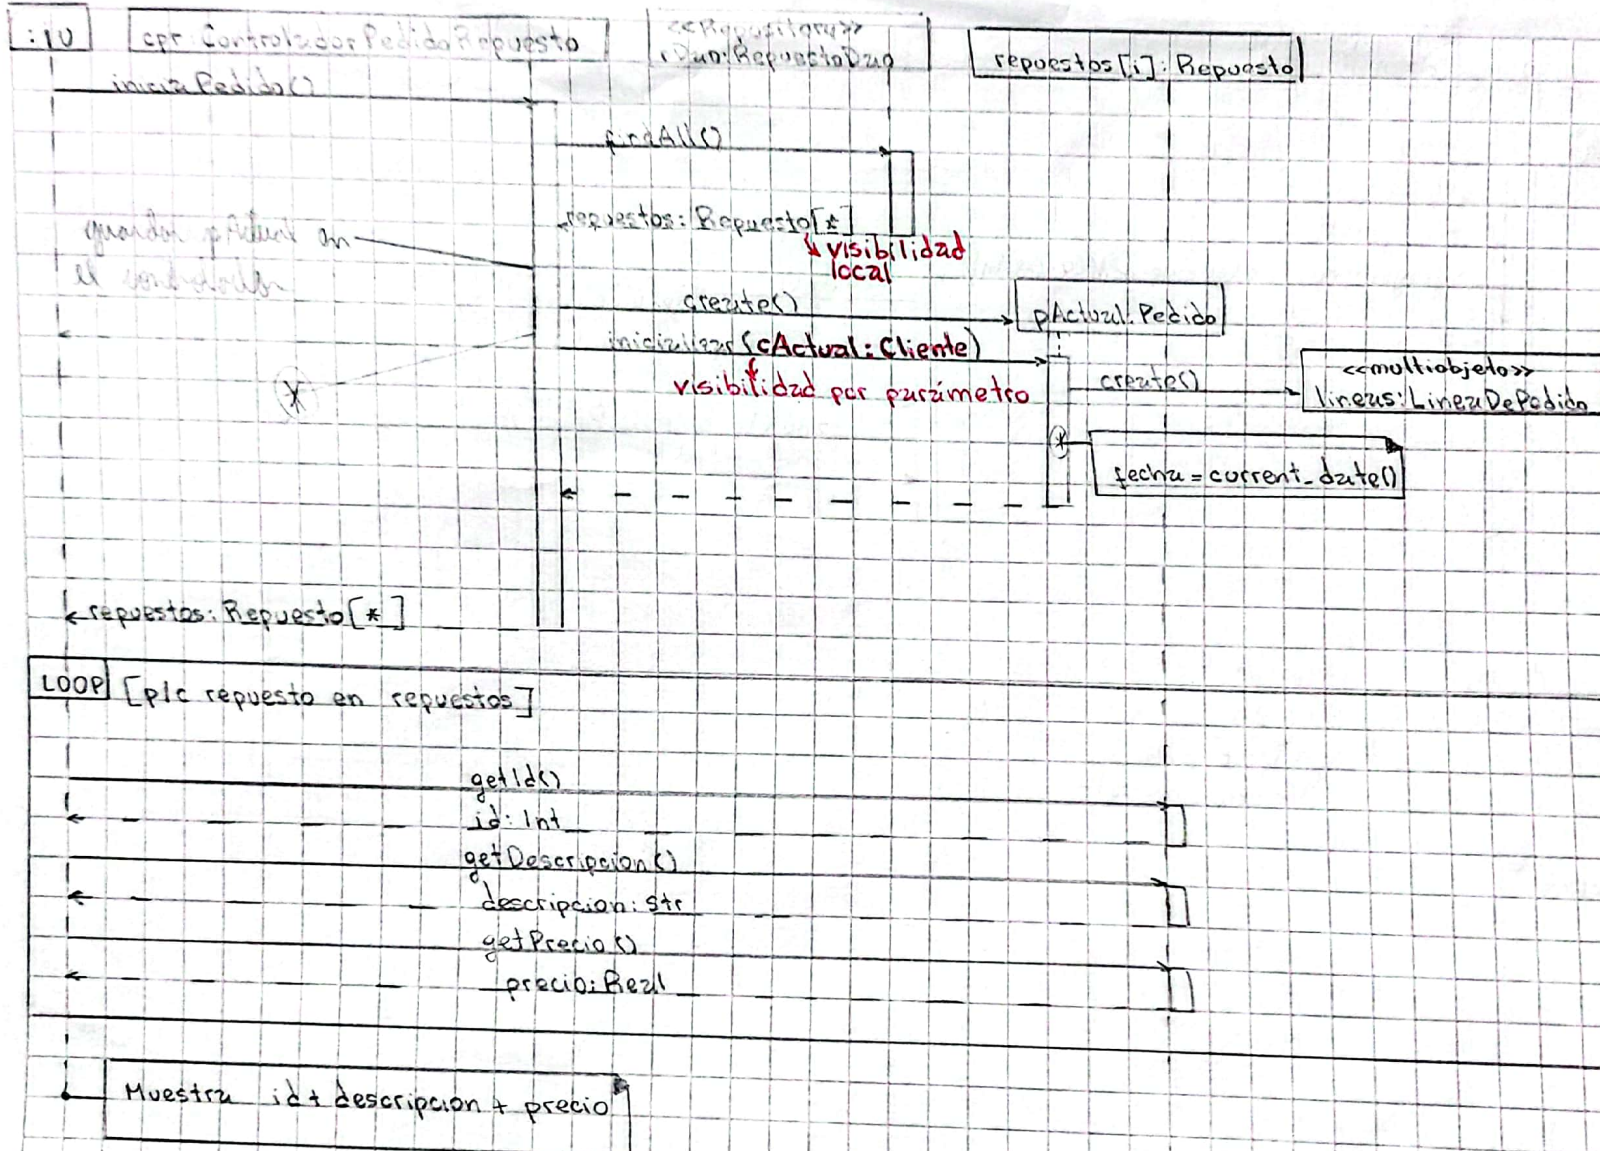 :IU
cpr: ControladorPedidoRepuesto
<<Repository>>
rDao:RepuestoDao
repuestos[i]: Repuesto
iniciaPedido()
findAll()
repuestos: Repuesto[*]
visibilidad
local
guardar pActual en
el controlador
create()
pActual: Pedido
inicializar(cActual: Cliente)
visibilidad por parámetro
create()
<<multiobjeto>>
lineas:LineaDePedido
*
*
fecha = current_date()
repuestos: Repuesto[*]
LOOP [p/c repuesto en repuestos]
getId()
id: Int
getDescripcion()
descripcion: Str
getPrecio()
precio: Real
Muestra id + descripcion + precio